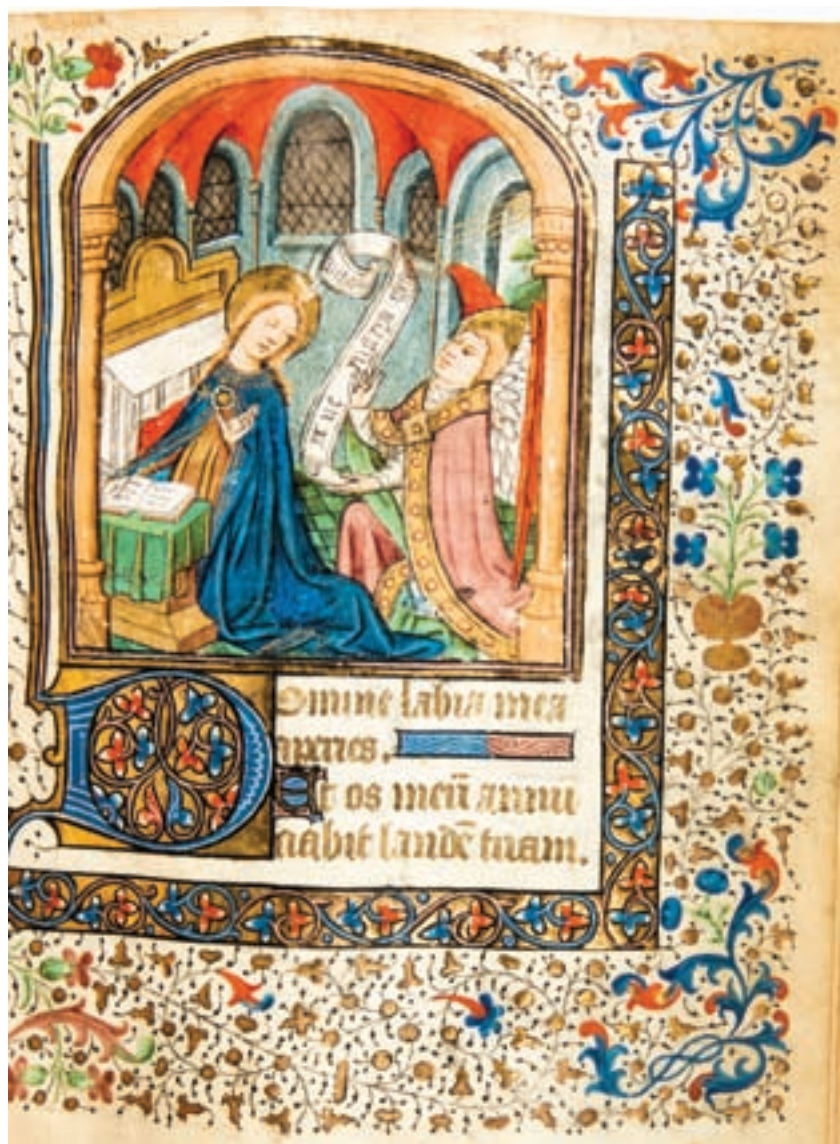 Ave maria gr
Domine labia mea
aperies.
Et os meū annū
ciabit laudē tuam.